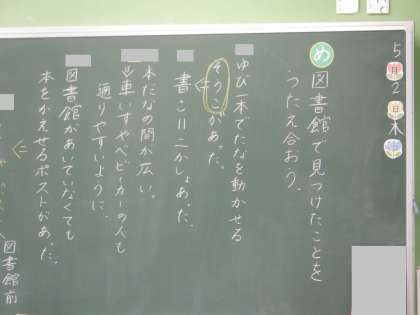 5月2日木
め 図書館で見つけたことを
つたえ合おう。
ゆび一本でたなを動かせる
そうこがあった。
書こ=二かしょあった。
本だなの間が広い。
⇒車いすやベビーカーの人も
通りやすいように。
図書館があいていなくても
本をかえせるポストがあった。
図書館前